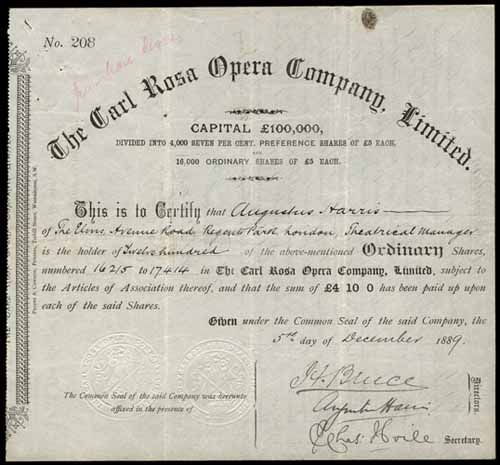 No. 208
The Carl Rosa Opera Company, Limited.
CAPITAL £100,000,
DIVIDED INTO 4,000 SEVEN PER CENT. PREFERENCE SHARES OF £5 EACH,
AND
16,000 ORDINARY SHARES OF £5 EACH.
This is to Certify that Augustus Harris
of The Elms Avenue Road Regents Park London, Theatrical Manager
is the holder of Twelve hundred of the above-mentioned Ordinary Shares,
numbered 16215 to 17414 in The Carl Rosa Opera Company, Limited, subject to
the Articles of Association thereof, and that the sum of £4 10 0 has been paid up upon
each of the said Shares.
Given under the Common Seal of the said Company, the
5th day of December 1889.
The Common Seal of the said Company was hereunto
affixed in the presence of
Bruce
Augustus Harris
Directors.
Secretary.